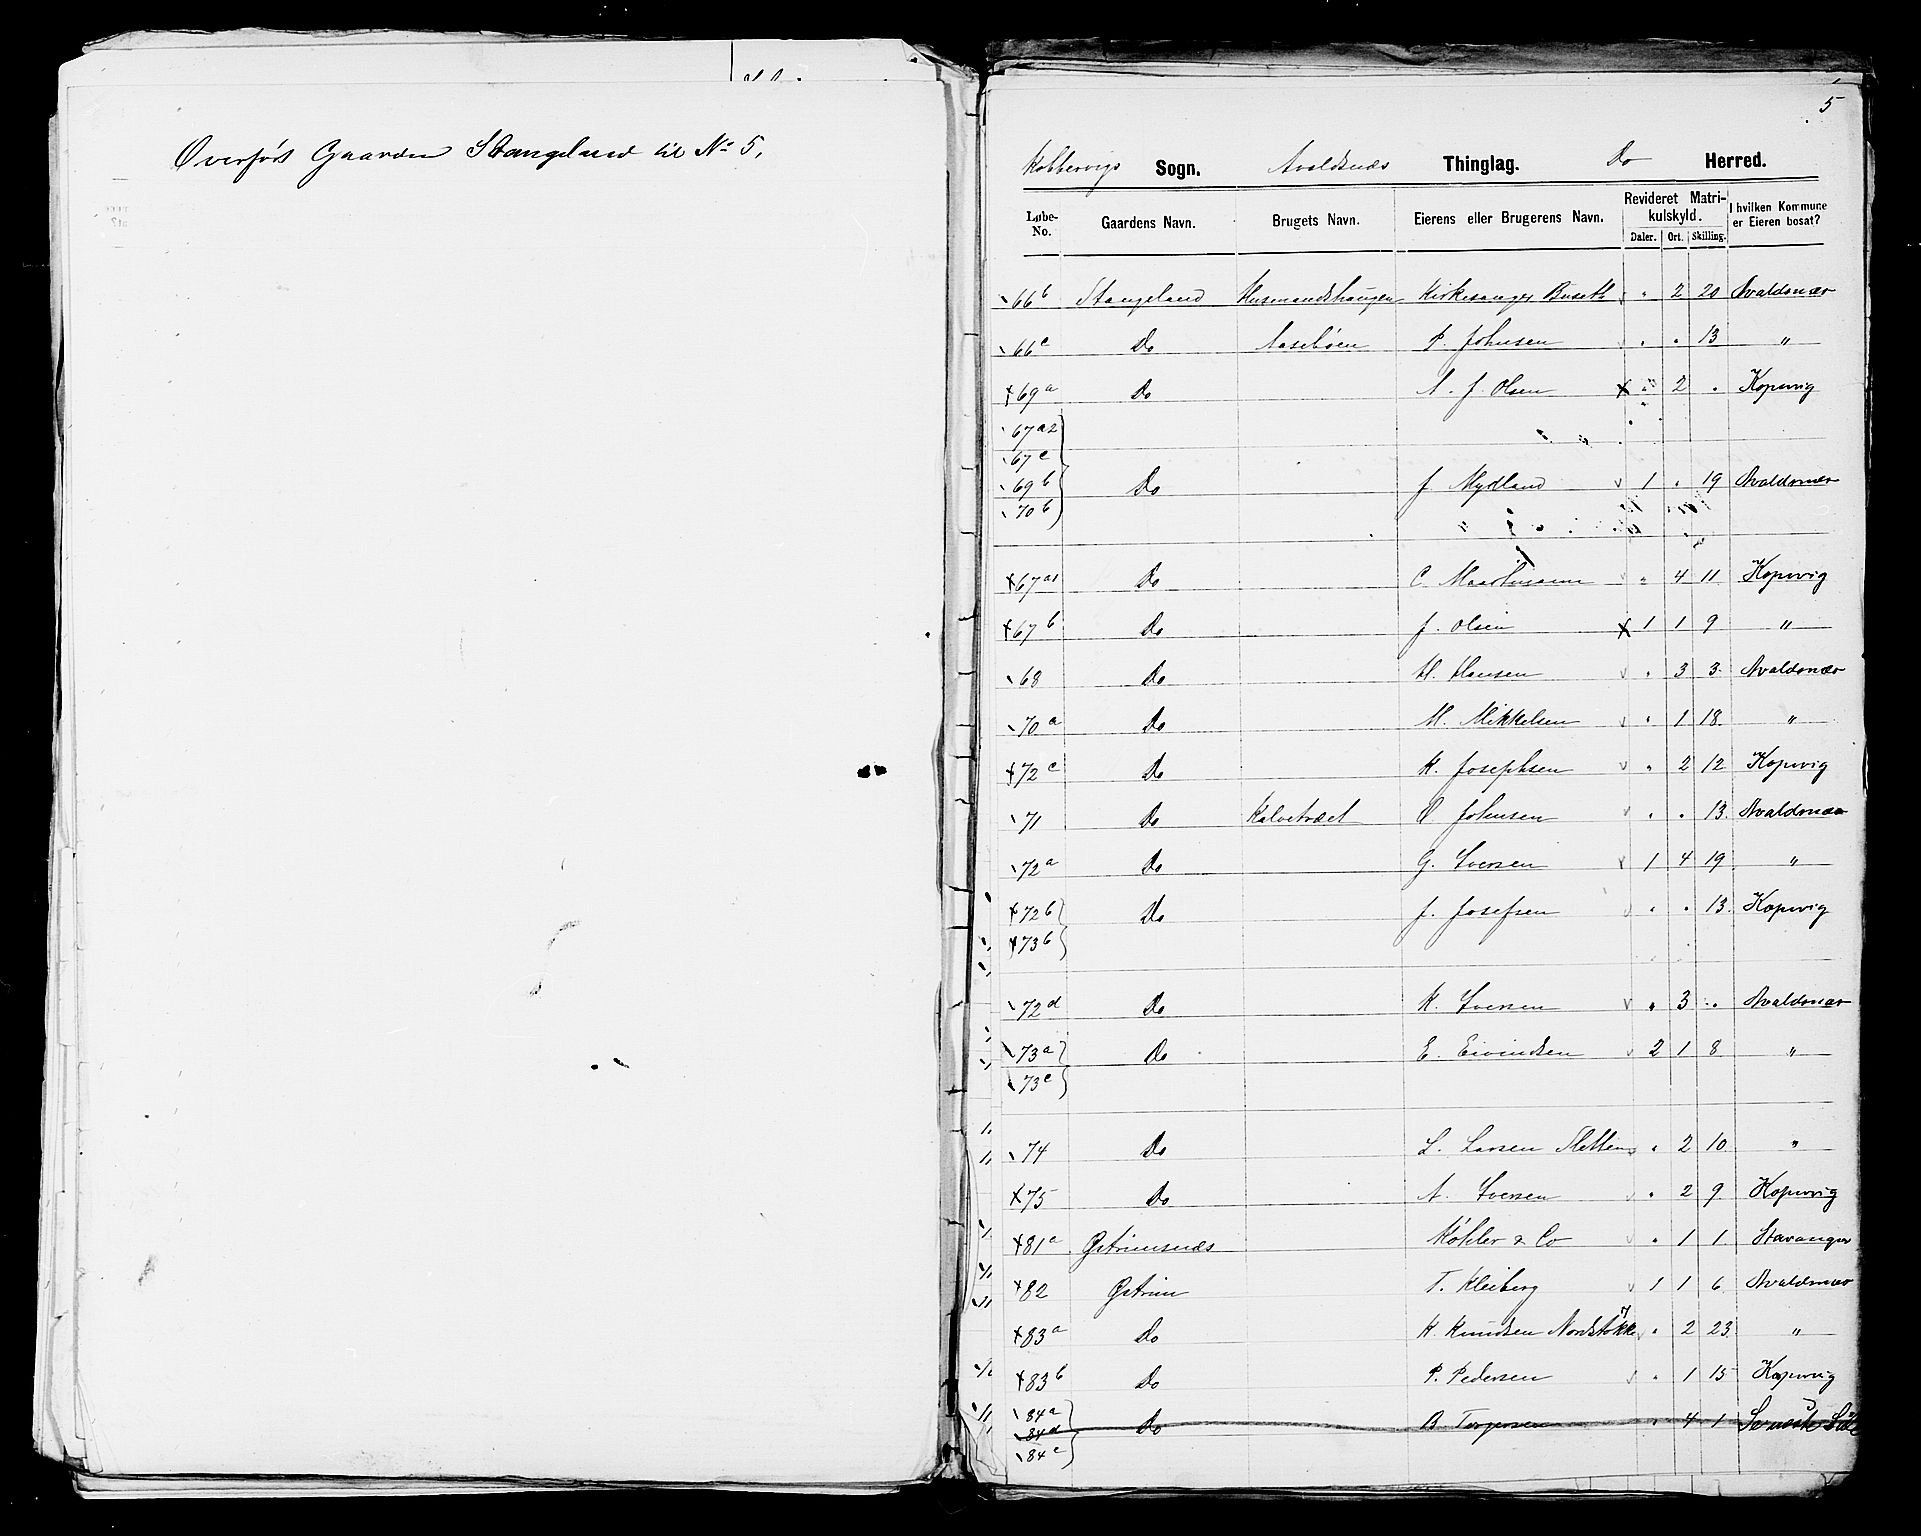 Overført Gaarden Stangeland til No 5,
5
Kobbervigs Sogn. Avaldsnæs Thinglag. Do Herred.
Løbe-No. Gaardens Navn. Brugets Navn. Eierens eller Brugerens Navn. Revideret Matrikulskyld. Daler. Ort. Skilling. I hvilken Kommune er Eieren bosat?
66b Stangeland Husmandshaugen Kirkesanger Buseth " 2 20 Avaldsnæs
66c Do Aasebøen P. Johnsen " " 13 "
69a Do A. J. Olsen " 2 " Kopervig
67a2
67c
69b Do J. Mydland 1 " 19 Avaldsnæs
70b
67a1 Do C. " 4 11 Kopervig
67b Do J. Olsen 1 1 9 "
68 Do H. Hansen " 3 3 Avaldsnæs
70a Do M. Mikkelsen " 1 18 "
72c Do K. Josephsen " 2 12 Kopervig
71 Do Kalvetræet O. Johnsen " " 13 Avaldsnæs
72a Do G. Iversen 1 4 19 "
72b Do J. Josefsen " " 13 Kopervig
73b
72d Do K. Iversen " 3 " Avaldsnæs
73a Do E. Eivindsen 2 1 8 "
73c
74 Do L. Larsen " 2 10 "
75 Do A. Iversen " 2 9 Kopervig
81a Østrimsnæs Køhler & Co " 1 1 Stavanger
82 Østrim T. Kleiberg 1 1 6 Avaldsnæs
83a Do K. Knudsen Nordstokke " 2 23 "
83b Do P. Pedersen " 1 15 Kopervig
84a
84d Do B Torgersen " 4 1 Side
84c